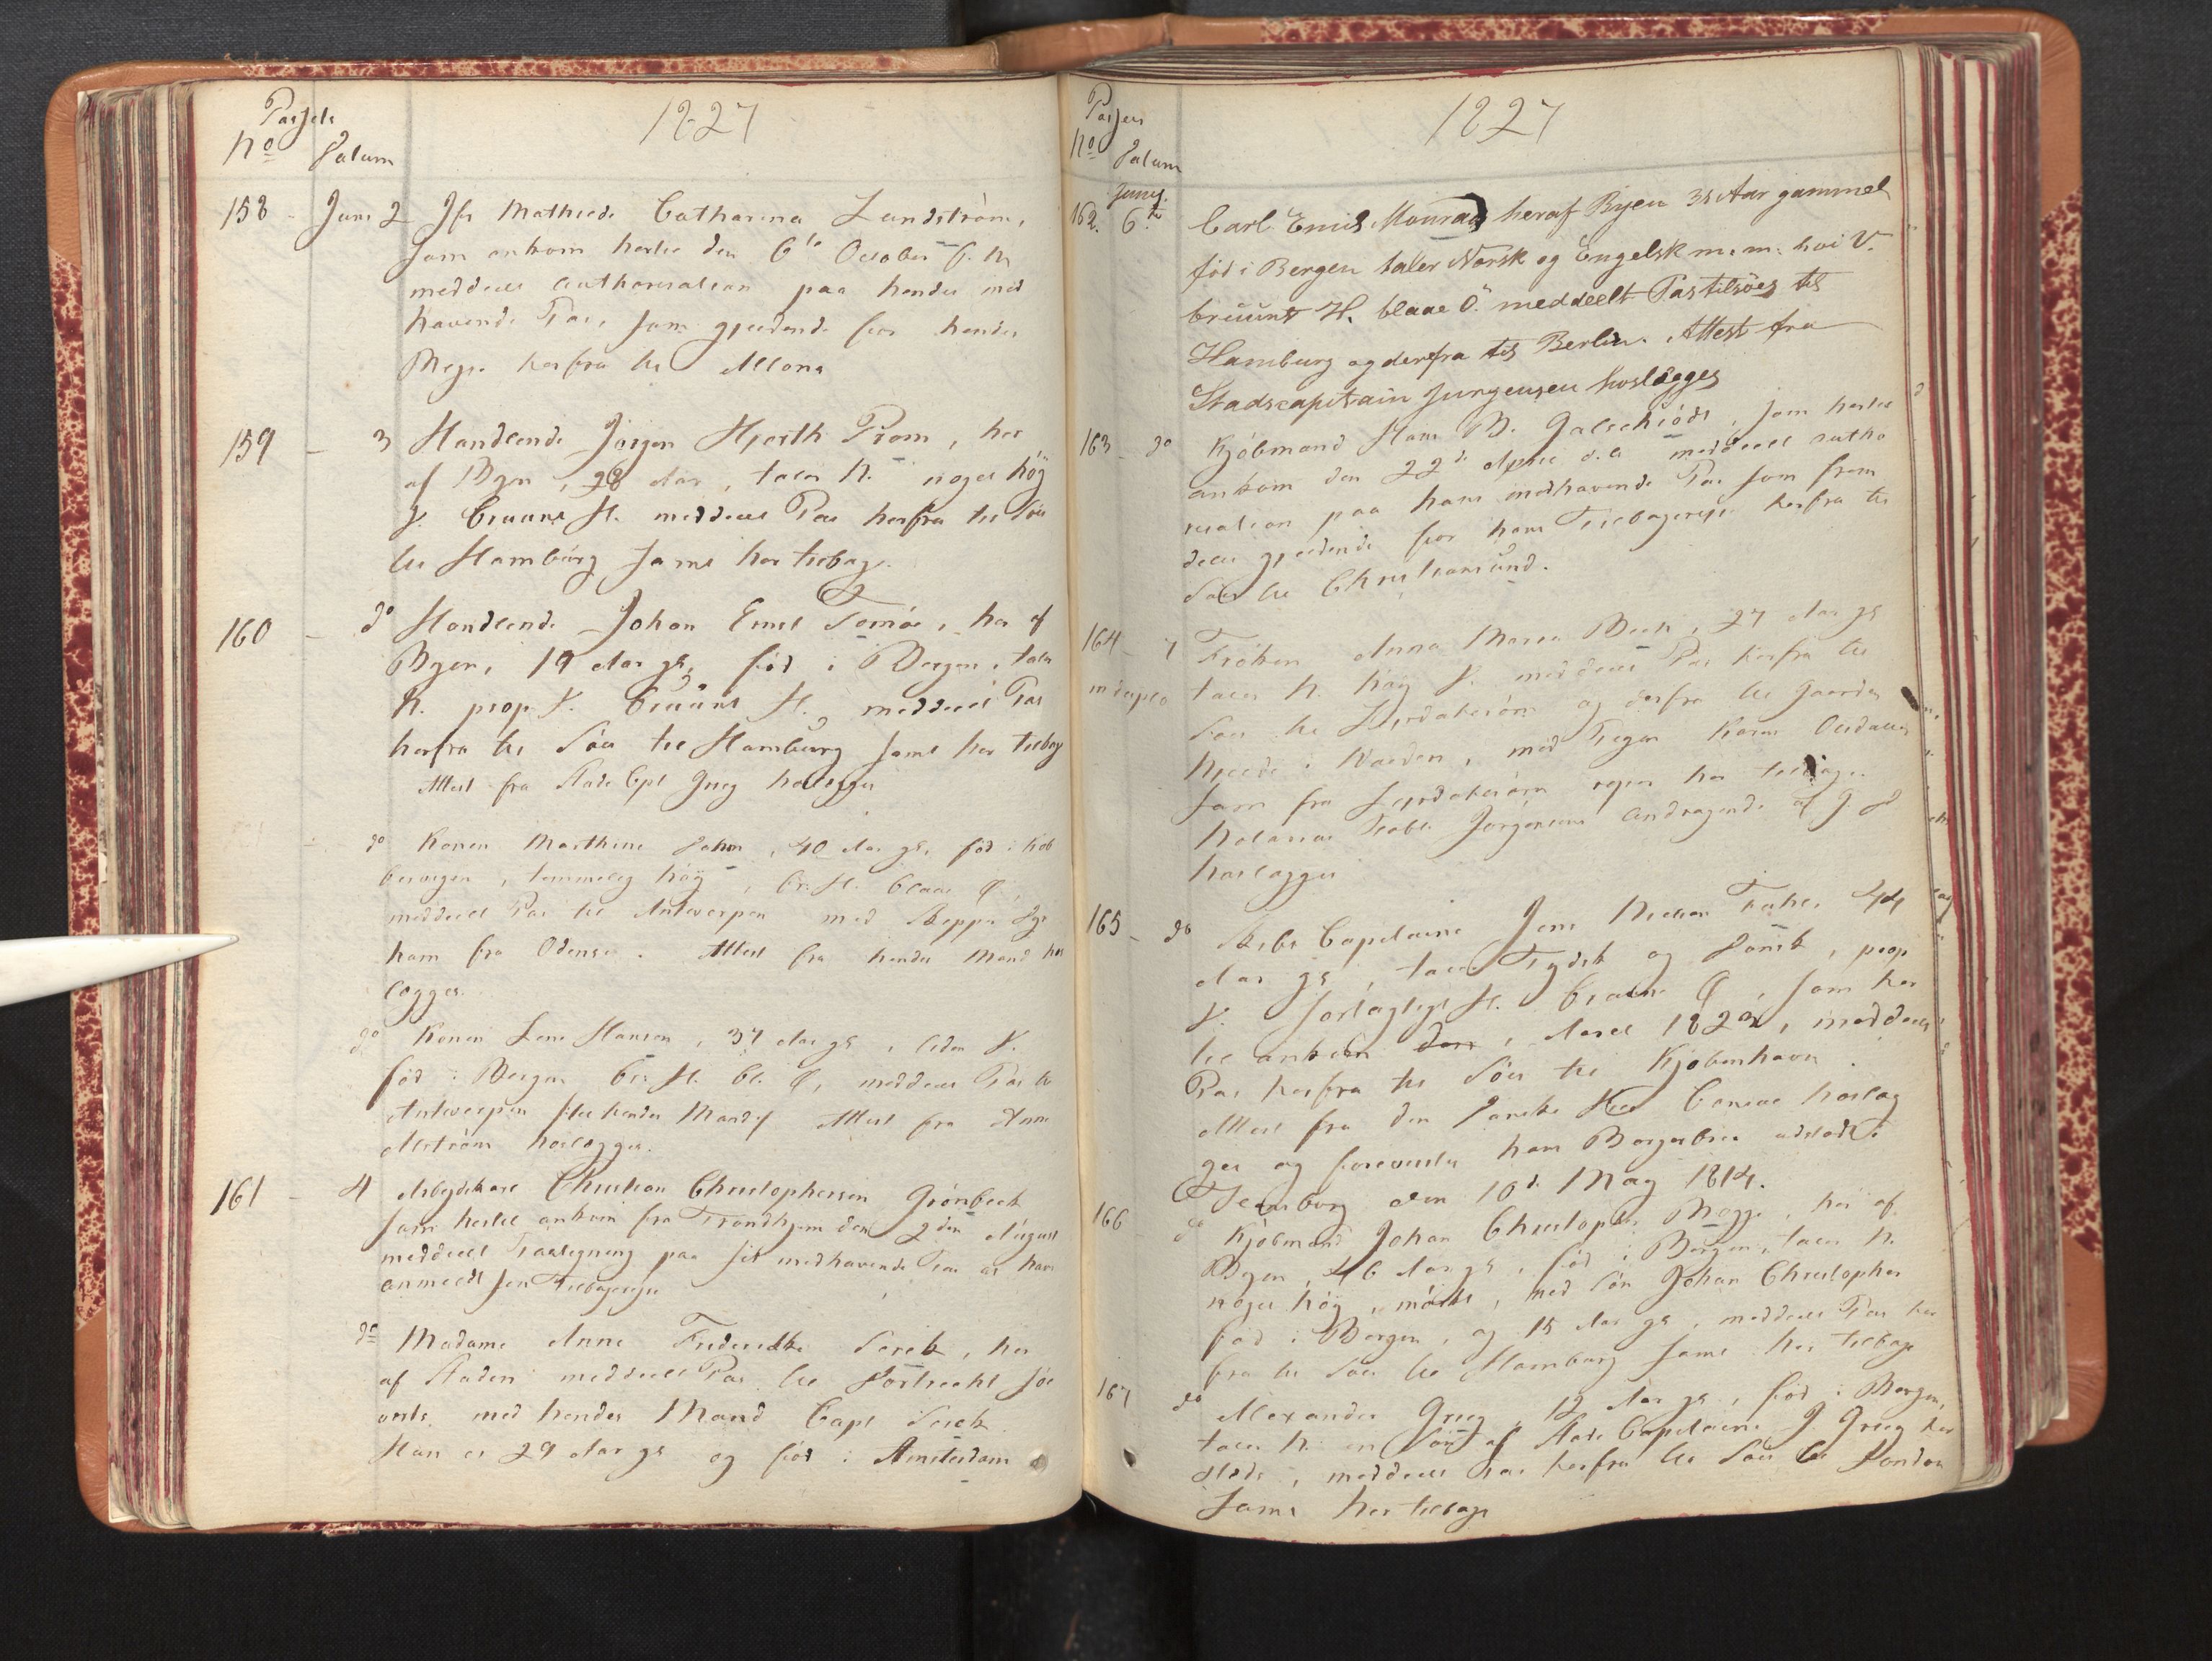 Passets
No Datum
1827
158 - Juni 2 Jfr Mathilde Catharina Lundström,
som ankom hertil den 6te October f. A.
meddeelt Authorisation paa hendes med
havende Pas, som gjeldende for hendes
Reyse herfra til Altona
159 - 3 Handlende Jörgen Hjorth Prom, her
af Byen, 28 Aar, taler N. noget höy
V. bruunt H. meddeelt Pas herfra til Söes
til Hamburg samt her tilbage.
160 - do Handlende Johan Ernst, her af
Byen, 19 Aar gl, föd i Bergen, taler
N. prop. V. bruunt H. meddeelt Pas
herfra til Söes til Hamburg samt her tilbage
Attest fra Stads Cpt Grieg hoslegges
do Konen Marthine Dahm, 40 Aar gl, föd i Kob
bervigen, temmelig höy, br. H. blaae Ö,
meddeelt Pas til Antwerpen med Skipper
ham fra Odense. Attest fra hendes Mand hos
legges.
do Konen Lene Hansen, 37 Aar gl, liden V.
föd i Bergen br. H. bl. Ö, meddeelt Pas til
Antwerpen til hendes Mand Attest fra Anne
Alströms hoslegges.
161 - 4 Arbeydskarl Christian Christophersen Grönbeck
som hertil ankom fra Trondhjem den 2den August
meddeelt Paategning paa sit medhavende Pas at have
anmeldt sin Tilbagereyse
do Madame Anne Frederikke Serck, her
af Staden meddeelt Pas til Dortrecht söe
verts med hendes Mand Capt Serck
Han er 29 Aar gl og föd i Amsterdam
Passets
No Datum
1827
Juny
162. 6te Carl Emil Monrad heraf Byen 35 Aar gammel
föd i Bergen taler Norsk og Engelsk m. m. höi V.
bruunt H. blaae Ö. meddeelt Pas tilsöes til
Hamburg og derfra til Berlin. Attest fra
Stadscapitain Jurgensen hoslægges
163 - do Kjöbmand Hans B. Galschiödt, som hertil
ankom den 22de April d. A. meddeelt autho
risation paa hans medhavende Pas som frem
deles gjeldende for hans Tilbagereyse herfra til
Söes til Christiansund.
164 - 7 Fröken Anna Maria Beck, 27 Aar gl
in duplo taler N. höy V. meddeelt Pas herfra til
Söes til Leerdalsören og derfra til Gaarden
i Walders, med Pigen Karen Olsdatter
som fra Leerdalsören reyser her tilbage.
Notarius Jörgensens Andragende af J. D
hoslegges
165 - do Skibs Capitaine Jens Nielsen 44
Aar gl, taler Tydsk og Dansk, prop
V. sortagtigt H. bruune Ö, som her
til ankom den, Aaret 1825, meddeelt
Pas herfra til Söes til Kjöbenhavn.
Attest fra den Danske Hrr Consul hoslæg
ges og foreviiste hans Borgerbrev udstedt i
den 10de May 1814.
166 do Kjöbmand Johan Christopher, her af
Byen, 46 Aar gl, föd i Bergen, taler N.
noget höy, mörkt, med Sön Johan Christopher
föd i Bergen, og 15 Aar gl, meddeelt Pas her
fra til Söes til Hamburg samt her tilbage
167 do Alexander Grieg, 12 Aar gl, föd i Bergen,
taler N. en Sön af Stads Capitaine J. Grieg her
steds, meddeelt Pas herfra til Söes til London
samt her tilbage